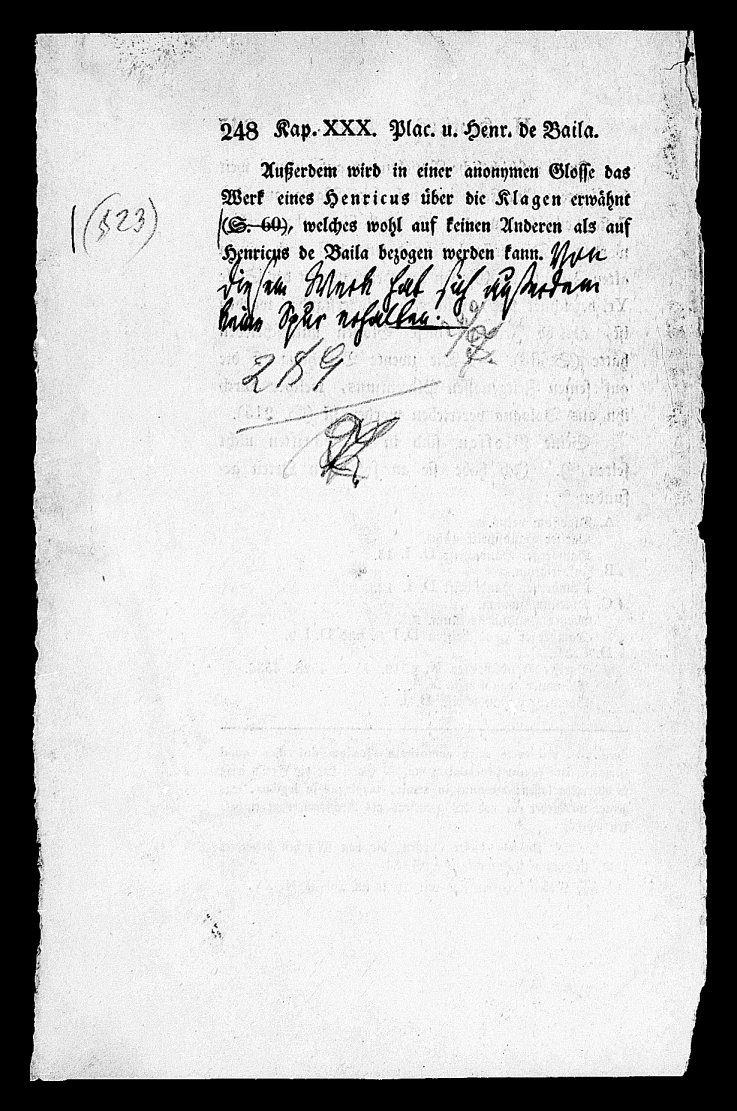 248 Kap. XXX. Plac. u. Henr. de Baila.
Außerdem wird in einer anonymen Glosse das
Werk eines Henricus über die Klagen erwähnt
(S. 60), welches wohl auf keinen Anderen als auf
Henricus de Baila bezogen werden kann. Von
diesem Werk hat sich außerdem
keine Spur erhalten.
|(523)
289